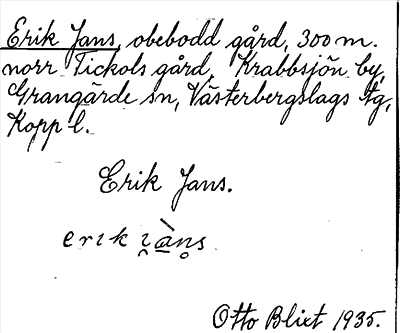 Erik Jans, obebodd gård, 300 m.
norr Tickols gård, Krabbsjön by,
Grangärde sn, Västerbergslags tg,
Kopp l.
Erik Jans.
Otto Blixt 1935.